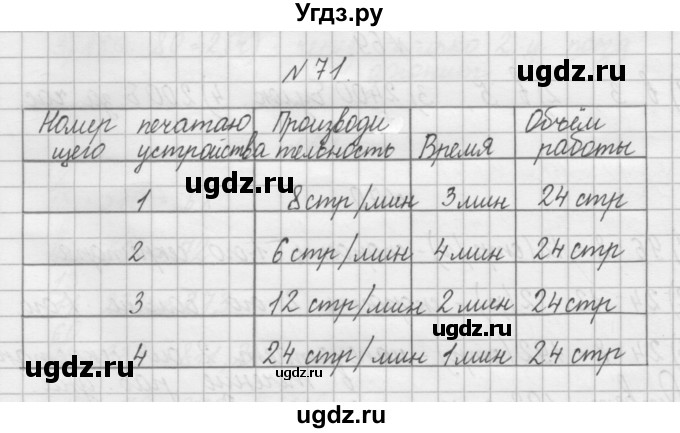 Угдз.ру
N 71.
Номер печатаю Производи Объём
щего устройства тельность Время работы
1 8 стр/мин 3 мин 24 стр
2 6 стр/мин 4 мин 24 стр
3 12 стр/мин 2 мин 24 стр
4 24 стр/мин 1 мин 24 стр
ugdz.ru
ugdz.ru
ugdz.ru
ugdz.ru
ugdz.ru
ugdz.ru
ugdz.ru
ugdz.ru